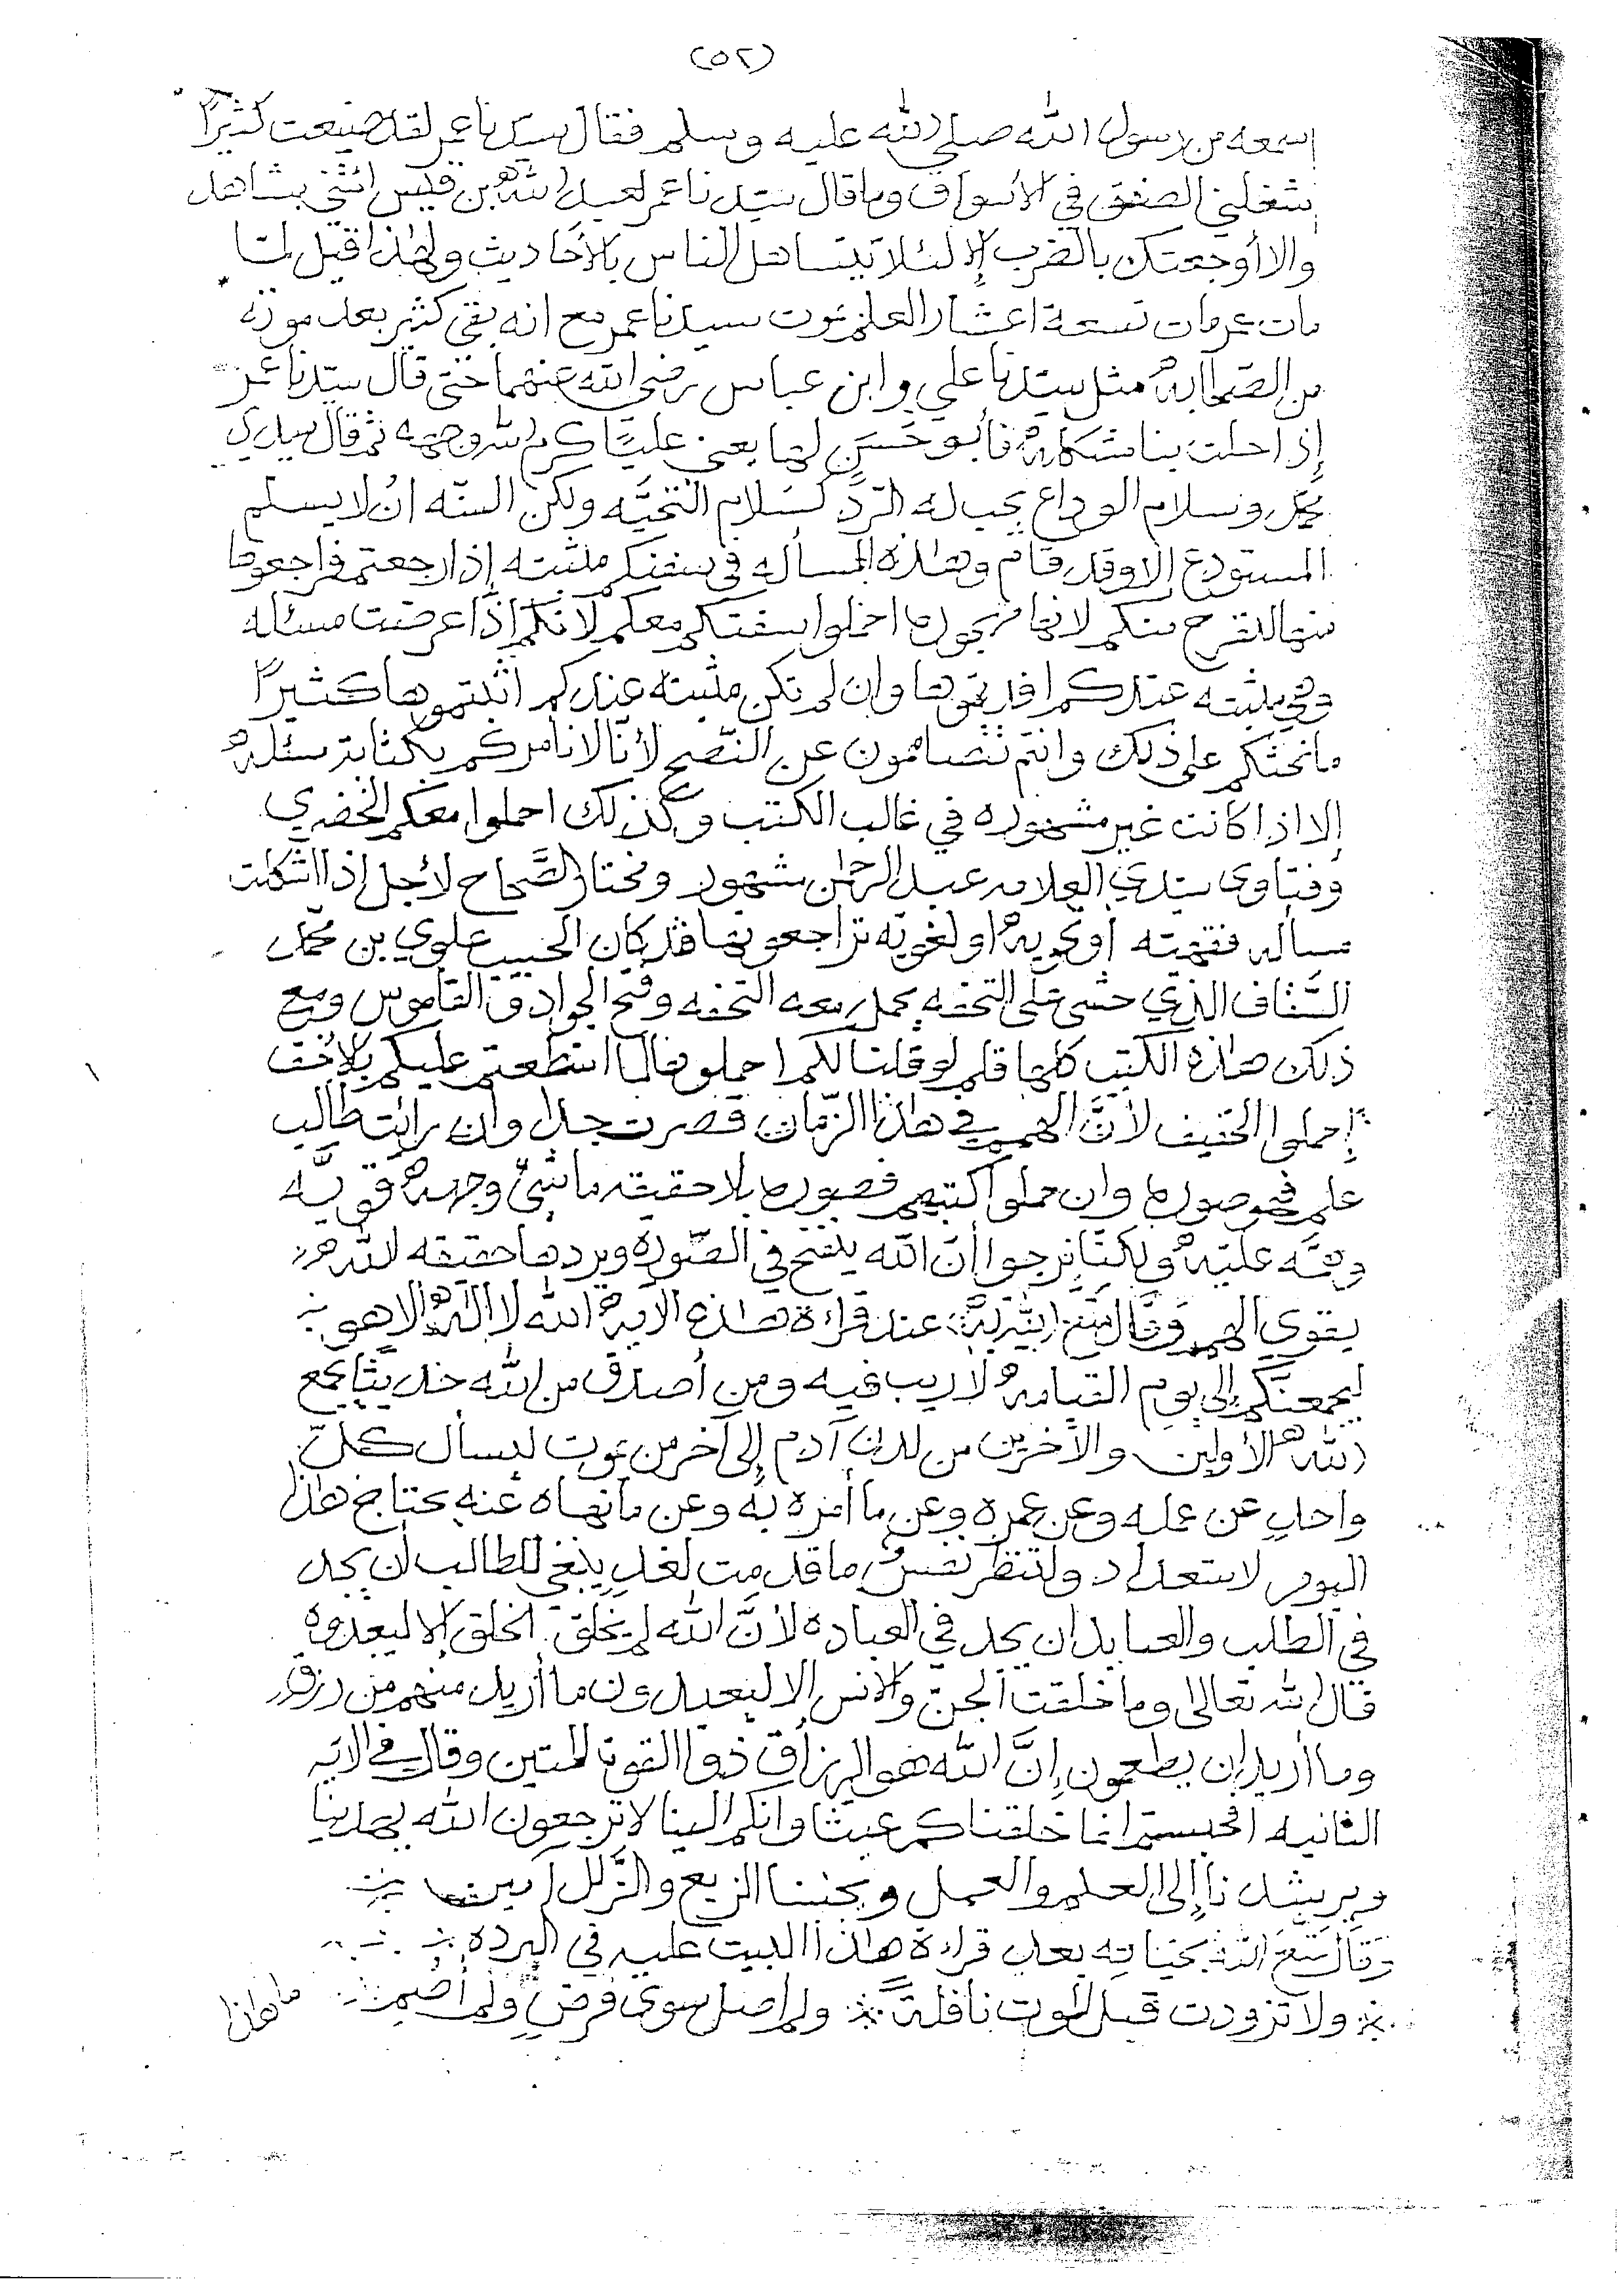 (٥٢)
اسمعه من رسول الله صلى الله عليه وسلم فقال سيدنا عمر لقد ضيعت كثيرًا
شغلني الصفق في الأسواق وما قال سيدنا عمر لعبد الله بن قيس ائتني بشاهد
والا أوجعتك بالضرب إلا لئلا يتساهل الناس بالأحاديث ولهٰذا قيل لمّا
مات عمر مات تسعة اعشار العلم بموت سيدنا عمر مع انه بقي كثير بعد موته
من الصّحابة مثل سيّدنا علي وابن عباس رضي الله عنهما حتى قال سيّدنا عمر
إذا حلت بنا مشكلة فأبو حَسَنٍ لها يعني عليًّا كرم الله وجهه ثم قال سيدي
محمد وسلام الوداع يجب له الرّد كسَلام التحيَّه ولكن السنّه انْ لا يسلم
المستودع إلا وقد قام وهٰذه المسأله في سفتكم مثبته إذا رجعتم فراجعوها
منها لتفرح منكم لانها احملوا سفتكم معكم لانكم اذا عرضت مسئاله
وهي مثبته عندكم افدتموها وان لم تكن مثبته عندكم اثبتموها كثيرًا
ما نحثكم على ذلك وانتم تتصاممون عن النّصح لأنّا لا نأمركم بكتابة مسئلة
إلا اذا كانت غير مشهوره في غالب الكتب وكذلك احملوا معكم الخضري
وفتاوى سيّدي العلامه عبد الرحمٰن مشهور ومختار الصَّحاح لأجل إذا اشكلت
مسأله فقهيّه أو نحوية او لغويّه تراجعونها قد كان الحبيب علوي بن محمّد
السَّقاف الذي حشى على التحفه يحمل معه التحفه وفتح الجواد والقاموس ومع
ذلك هٰذه الكتب كلها قلم لو قلنا لكم احملوها لما استطعتم عليكم بالأخف
إحملوا الخفيف لأنَّ الهمم في هٰذا الزّمان قصرت جدا وان رأيت طالب
علم فهو صوره وان حملوا كتبهم فصوره بلا حقيقه ما شيْ وجهة قويَّه
وهمَّه عليّة ولكنّا نرجوا أنّ الله ينفخ في الصّوره ويردها حقيقه الله
يقوي الهمم وقال متع الله به عند قراءة هٰذه الآية الله لا اله إلا هو
ليجمعنّكم إلى يوم القيامة لا ريب فيه ومن أصدق من الله حديثًا يجمع
الله الأولين والآخرين من لدن آدم إلى آخر من يموت ليسأل كلّ
واحدٍ عن عمله وعن عمره وعن ما أمره به وعن ما نهاه عنه يحتاج هٰذا
اليوم لاستعداد ولتنظر نفسٌ ما قدمت لغدٍ ينبغي للطالب أن يجد
في الطلب والعابد ان يجد في العباده لأنَّ الله لم يخلق الخلق إلا ليعبدوه
قال الله تعالى وما خلقت الجنّ والانس إلا ليعبدون ما أريد منهم من رزق
وما أريد ان يطعمون إنَّ الله هو الرزاق ذوا القوة المتين وقال في الآيه
الثانيه افحسبتم انما خلقناكم عبثا وانكم الينا لا ترجعون الله يهدينا
ويرشدنا إلى العلم والعمل ويجنبنا الزيغ والزَّلل آمين
وقال متع الله بحياته بعد قراءة هٰذا البيت عليه في البرده
ولا تزودت قبل الموت نافلةً ولم اصل سوى فرضٍ ولم أصُمِ
ما هٰذا